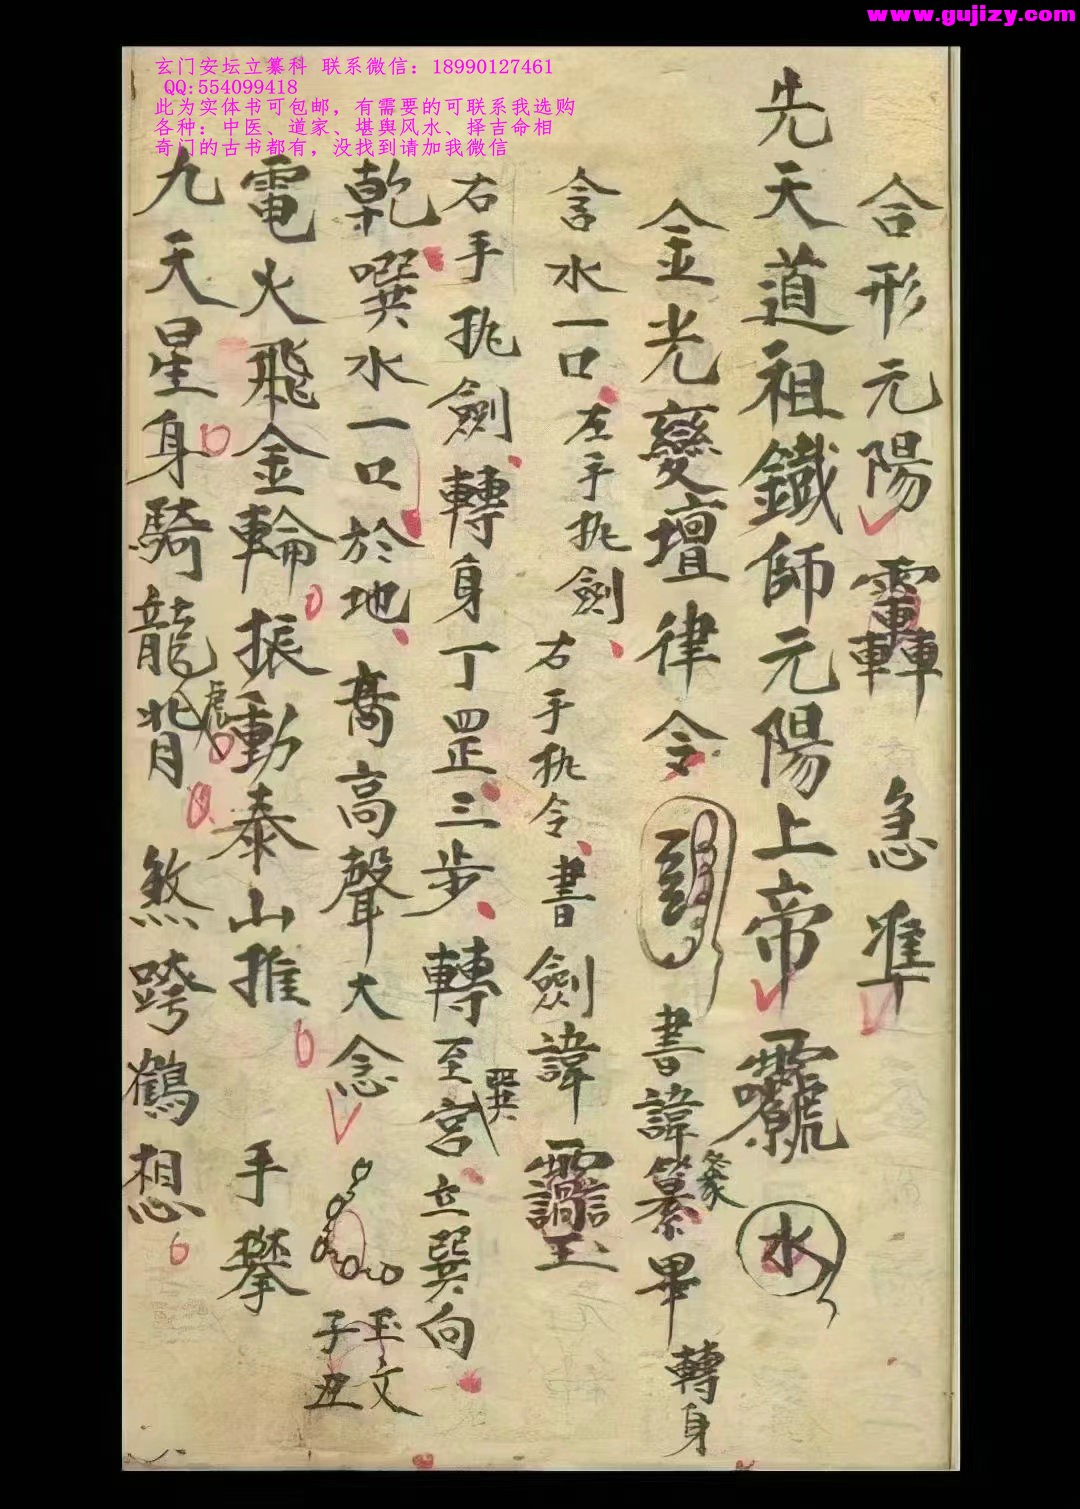 www.gujizy.com
玄门安坛立纂科 联系微信：18990127461
QQ:554099418
此为实体书可包邮，有需要的可联系我选购
各种：中医、道家、堪舆风水、择吉命相
奇门的古书都有，没找到请加我微信
合形元陽 急准
先天道祖鐵師元陽上帝 水
金光變壇律令 書諱纂畢 轉身
篆
含水一口、左手执劍、右手执令、書劍諱
右手执劍、轉身丁罡、三步、轉至宫立巽向
巽
乾噀水一口於地、髙高聲大念 玉文
子丑
電火飛金輪振動泰山推 手攀
九天星身騎龍背 煞跨鶴想
虎